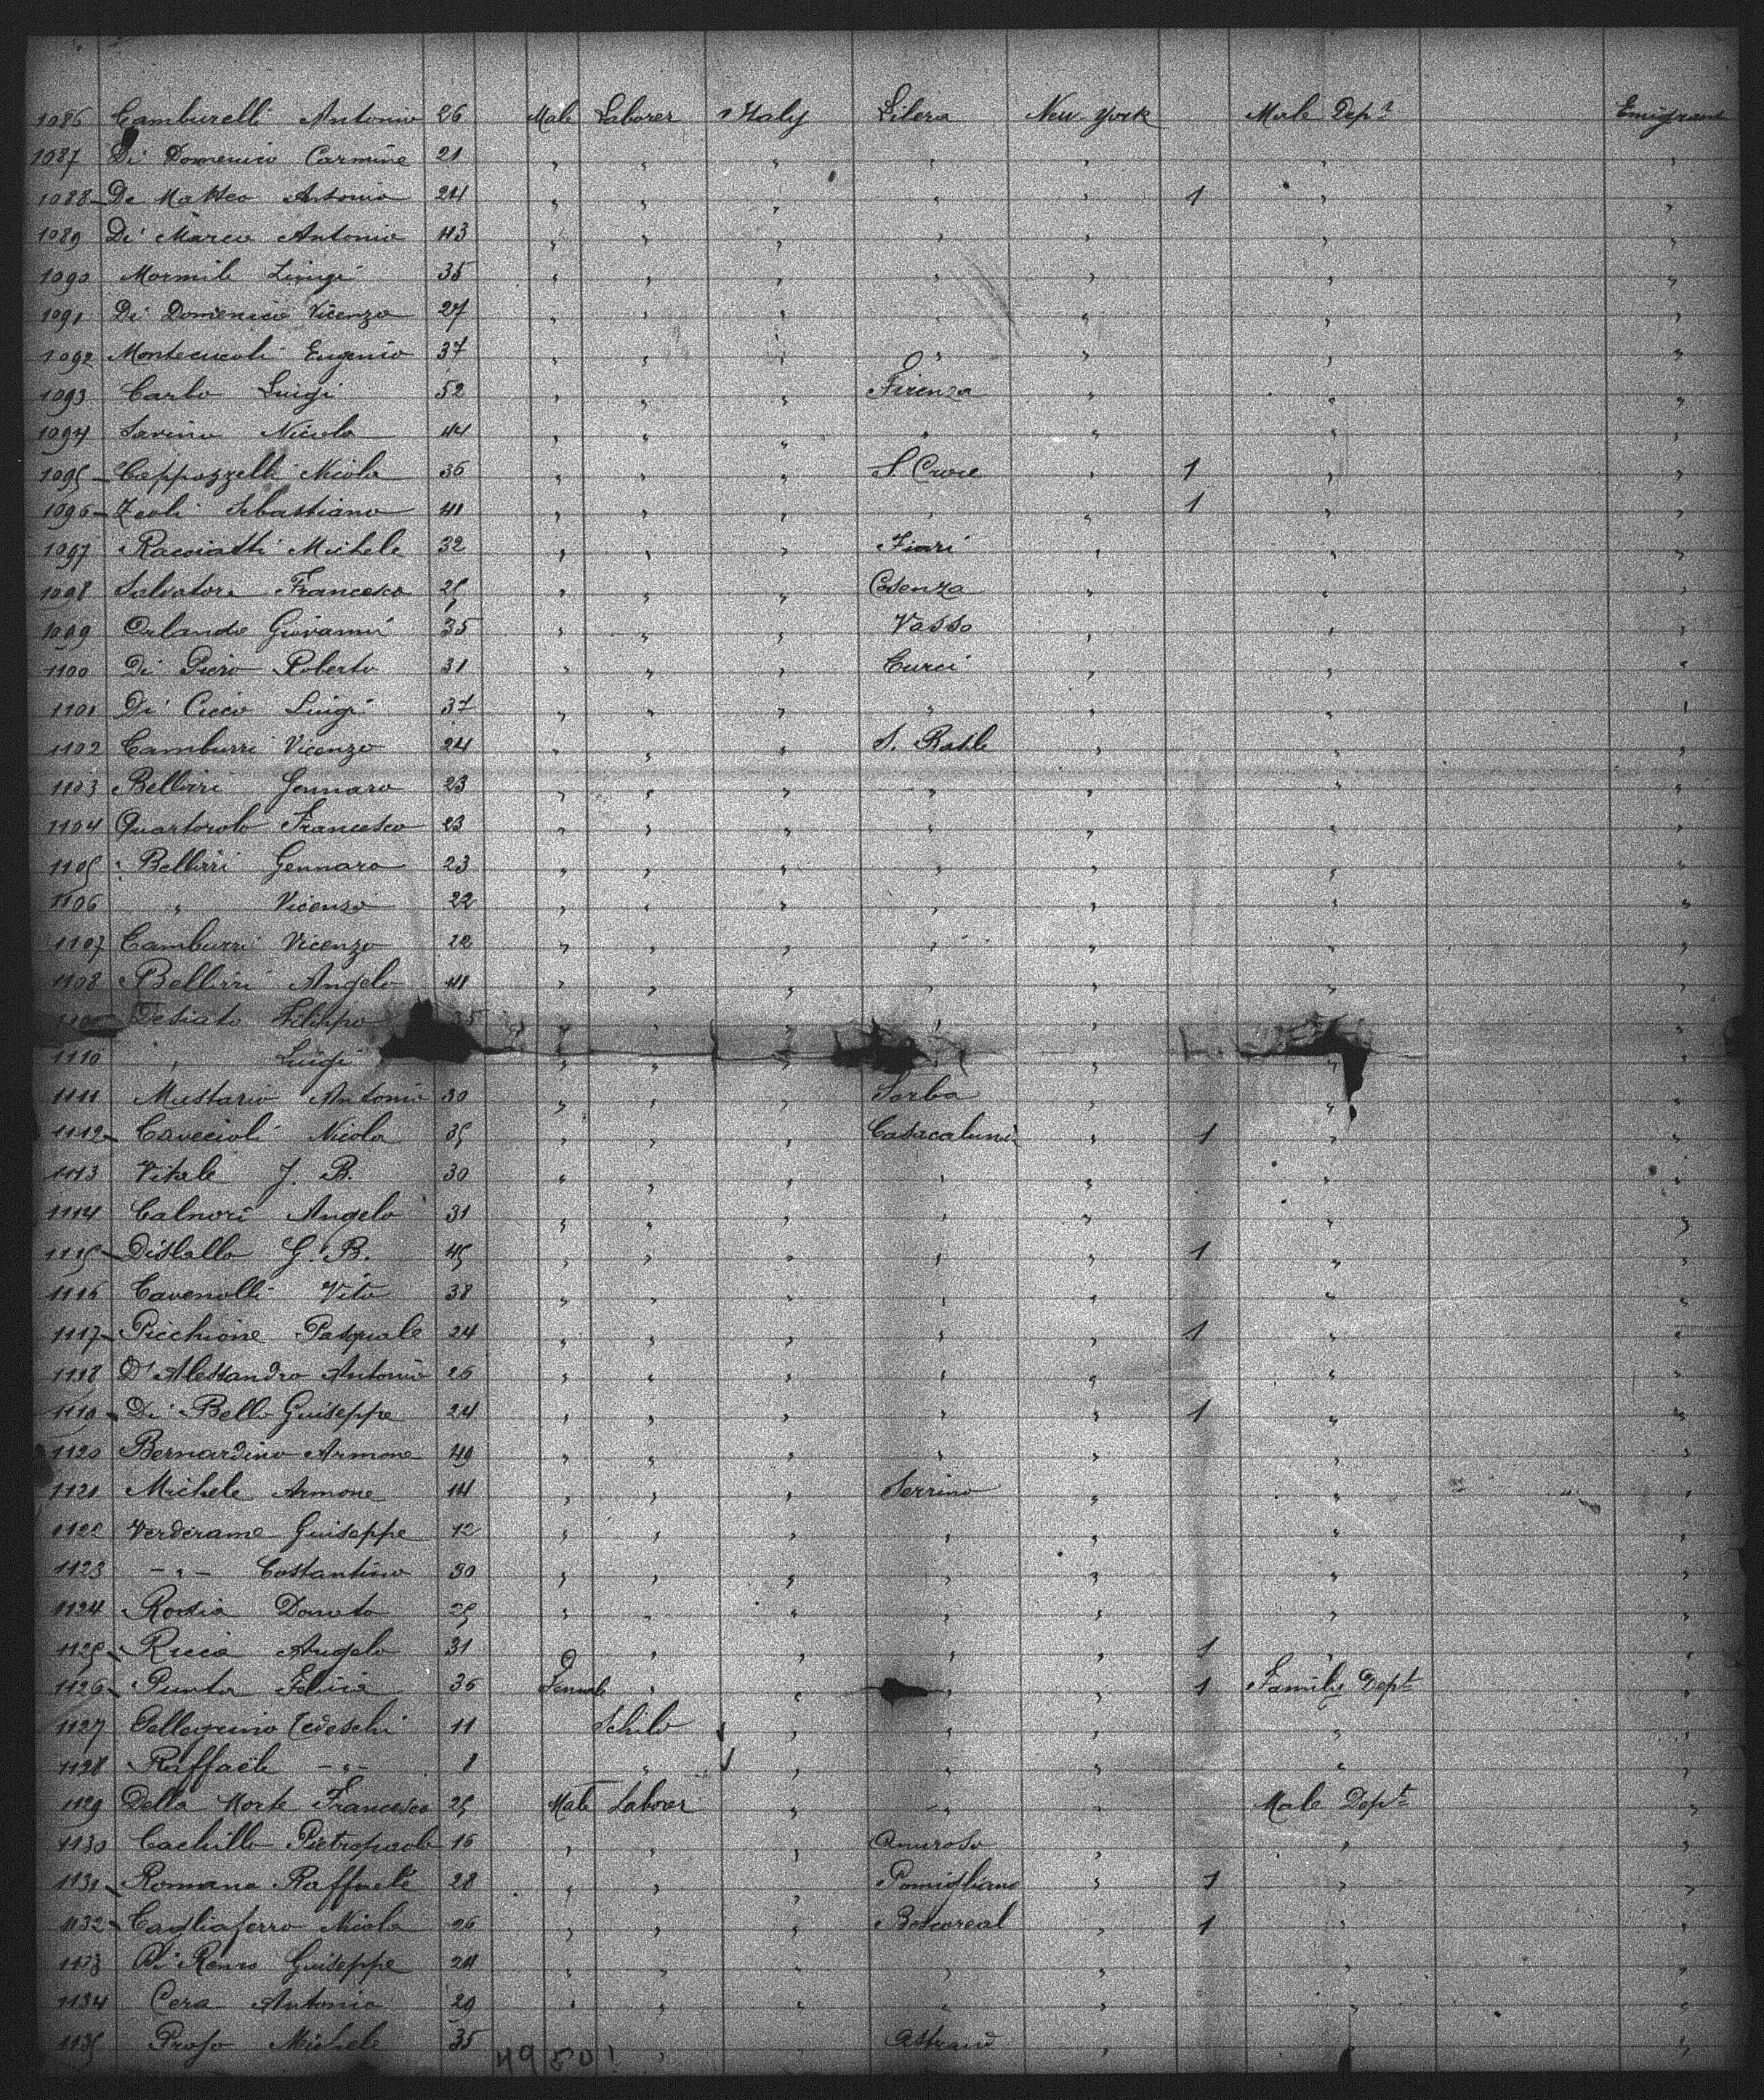 1086 Camburelli Antonio 26 Male Laborer Italy Litera New York Male Dept Emigrant
1087 Di Domenico Carmine 21 " " " " " " "
1088 De Matteo Antonio 24 " " " " " 1 " "
1089 Di Marco Antonio 43 " " " " " " "
1090 Mormile Luigi 35 " " " " " " "
1091 Di Domenico Vicenzo 27 " " " " " " "
1092 Montecucoli Eugenio 37 " " " " " " "
1093 Carlo Luigi 52 " " " Firenza " " "
1094 Savino Nicola 44 " " " " " " "
1095 Cappozzelli Nicola 36 " " " S. Croce " 1 " "
1096 Zeoli Sebastiano 41 " " " " " 1 " "
1097 Racciatti Michele 32 " " " " " "
1098 Salvatore Francesco 25 " " " Cosenza " " "
1099 Orlando Giovanni 35 " " " Vasso " " "
1100 Di Piero Roberto 31 " " " Curci " " "
1101 Di Cicco Luigi 37 " " " " " " "
1102 Camburri Vicenzo 24 " " " S. Basile " " "
1103 Bellizzi Gennaro 23 " " " " " " "
1104 Quartorolo Francesco 23 " " " " " " "
1105 Bellizzi Gennaro 23 " " " " " " "
1106 " Vicenzo 22 " " " " " " "
1107 Camburri Vicenzo 22 " " " " " " "
1108 Bellizzi Angelo 41 " " " " " " "
Desiato Filippo 35 " " " " " "
1110 " Luigi " " " " " "
1111 Mustario Antonio 30 " " " Sorba " " "
1112 Caveciol Nicola 35 " " " " 1 " "
1113 Vitale J. B. 30 " " " " " " "
1114 Calnori Angelo 31 " " " " " " "
1115 Distallo G. B. 45 " " " " " 1 " "
1116 Cavenolli Vito 38 " " " " " " "
1117 Picchione Pasquale 24 " " " " " 1 " "
1118 D'Alessandro Antonio 26 " " " " " " "
1119 Di Bello Guiseppe 24 " " " " " 1 " "
1120 Bernardino Armone 49 " " " " " " "
1121 Michele Armone 14 " " " Serrino " " "
1122 Verderame Guiseppe 42 " " " " " " "
1123 - " - Costantino 30 " " " " " " "
1124 Rossia Donato 25 " " " " " " "
1125 Riccia Angelo 31 " " " " 1 " "
1126 Punta Felicia 36 Female " " " " 1 Family Dept "
1127 Pellegrino Tedeschi 11 Schild " " " " "
1128 Raffaele - " - 8 " " " " " "
1129 Della Morte Francesco 25 Male Laborer " " " Male Dept "
1130 Cachillo Pietropaolo 16 " " " " " "
1131 Romano Raffaele 28 " " " Pomigliano " 1 " "
1132 Cagliaferro Nicola 26 " " " Boscoreal " 1 " "
1133 Di Renzo Guiseppe 24 " " " " " " "
1134 Cera Antonio 29 " " " " " " "
1135 Michele 35 " " " " "